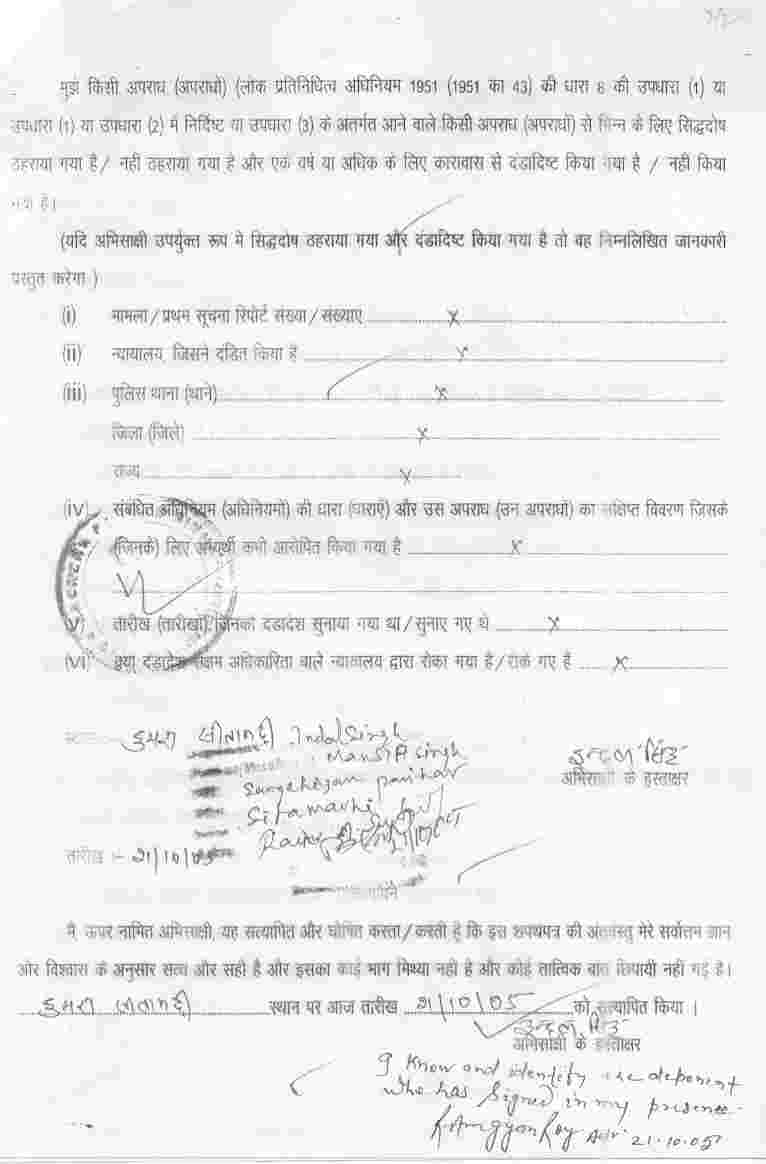 मुझे किसी अपराध (अपराधों) (लोक प्रतिनिधित्व अधिनियम 1951 (1951 का 43) की धारा 8 की उपधारा (1) या
उपधारा (1) या उपधारा (2) में निर्दिष्ट या उपधारा (3) के अंतर्गत आने वाले किसी अपराध (अपराधों) से भिन्न के लिए सिद्धदोष
ठहराया गया है / नहीं ठहराया गया है और एक वर्ष या अधिक के लिए कारावास से दंडादिष्ट किया गया है / नहीं किया
गया है।
(यदि अभिसाक्षी उपर्युक्त रूप में सिद्धदोष ठहराया गया और दंडादिष्ट किया गया है तो वह निम्नलिखित जानकारी
प्रस्तुत करेगा )
(i) मामला / प्रथम सूचना रिपोर्ट संख्या / संख्याएं x
(ii) न्यायालय, जिसने दंडित किया है x
(iii) पुलिस थाना (थाने) x
जिला (जिले) x
राज्य x
(iv) संबंधित अधिनियम (अधिनियमों) की धारा (धाराएं) और उस अपराध (उन अपराधों) का संक्षिप्त विवरण जिसके
(जिनके) लिए अभ्यर्थी कभी आरोपित किया गया है x
(v) तारीख (तारीखों) जिनको दंडादेश सुनाया गया था / सुनाए गए थे x
(vi) क्या दंडादेश सक्षम अधिकारिता वाले न्यायालय द्वारा रोका गया है / रोके गए हैं x
डुमरा सीतामढ़ी Indal Singh
singh
parihar
Sitamarhi
इन्दल सिंह
अभिसाक्षी के हस्ताक्षर
तारीख :- 21/10/05
मैं, ऊपर नामित अभिसाक्षी, यह सत्यापित और घोषित करता / करती हूँ कि इस शपथपत्र की अंतर्वस्तु मेरे सर्वोत्तम ज्ञान
और विश्वास के अनुसार सत्य और सही है और इसका कोई भाग मिथ्या नहीं है और कोई तात्विक बात छिपायी नहीं गई है।
डुमरा सीतामढ़ी स्थान पर आज तारीख 21/10/05 को सत्यापित किया ।
इन्दल सिंह
अभिसाक्षी के हस्ताक्षर
I know and identify the deponent
who has signed in my presence.
21.10.05